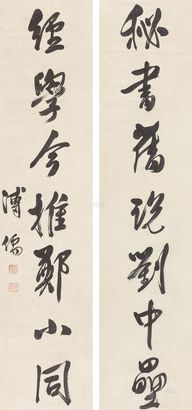 秘書舊說劉中壘
經學今推鄭小同
溥儒